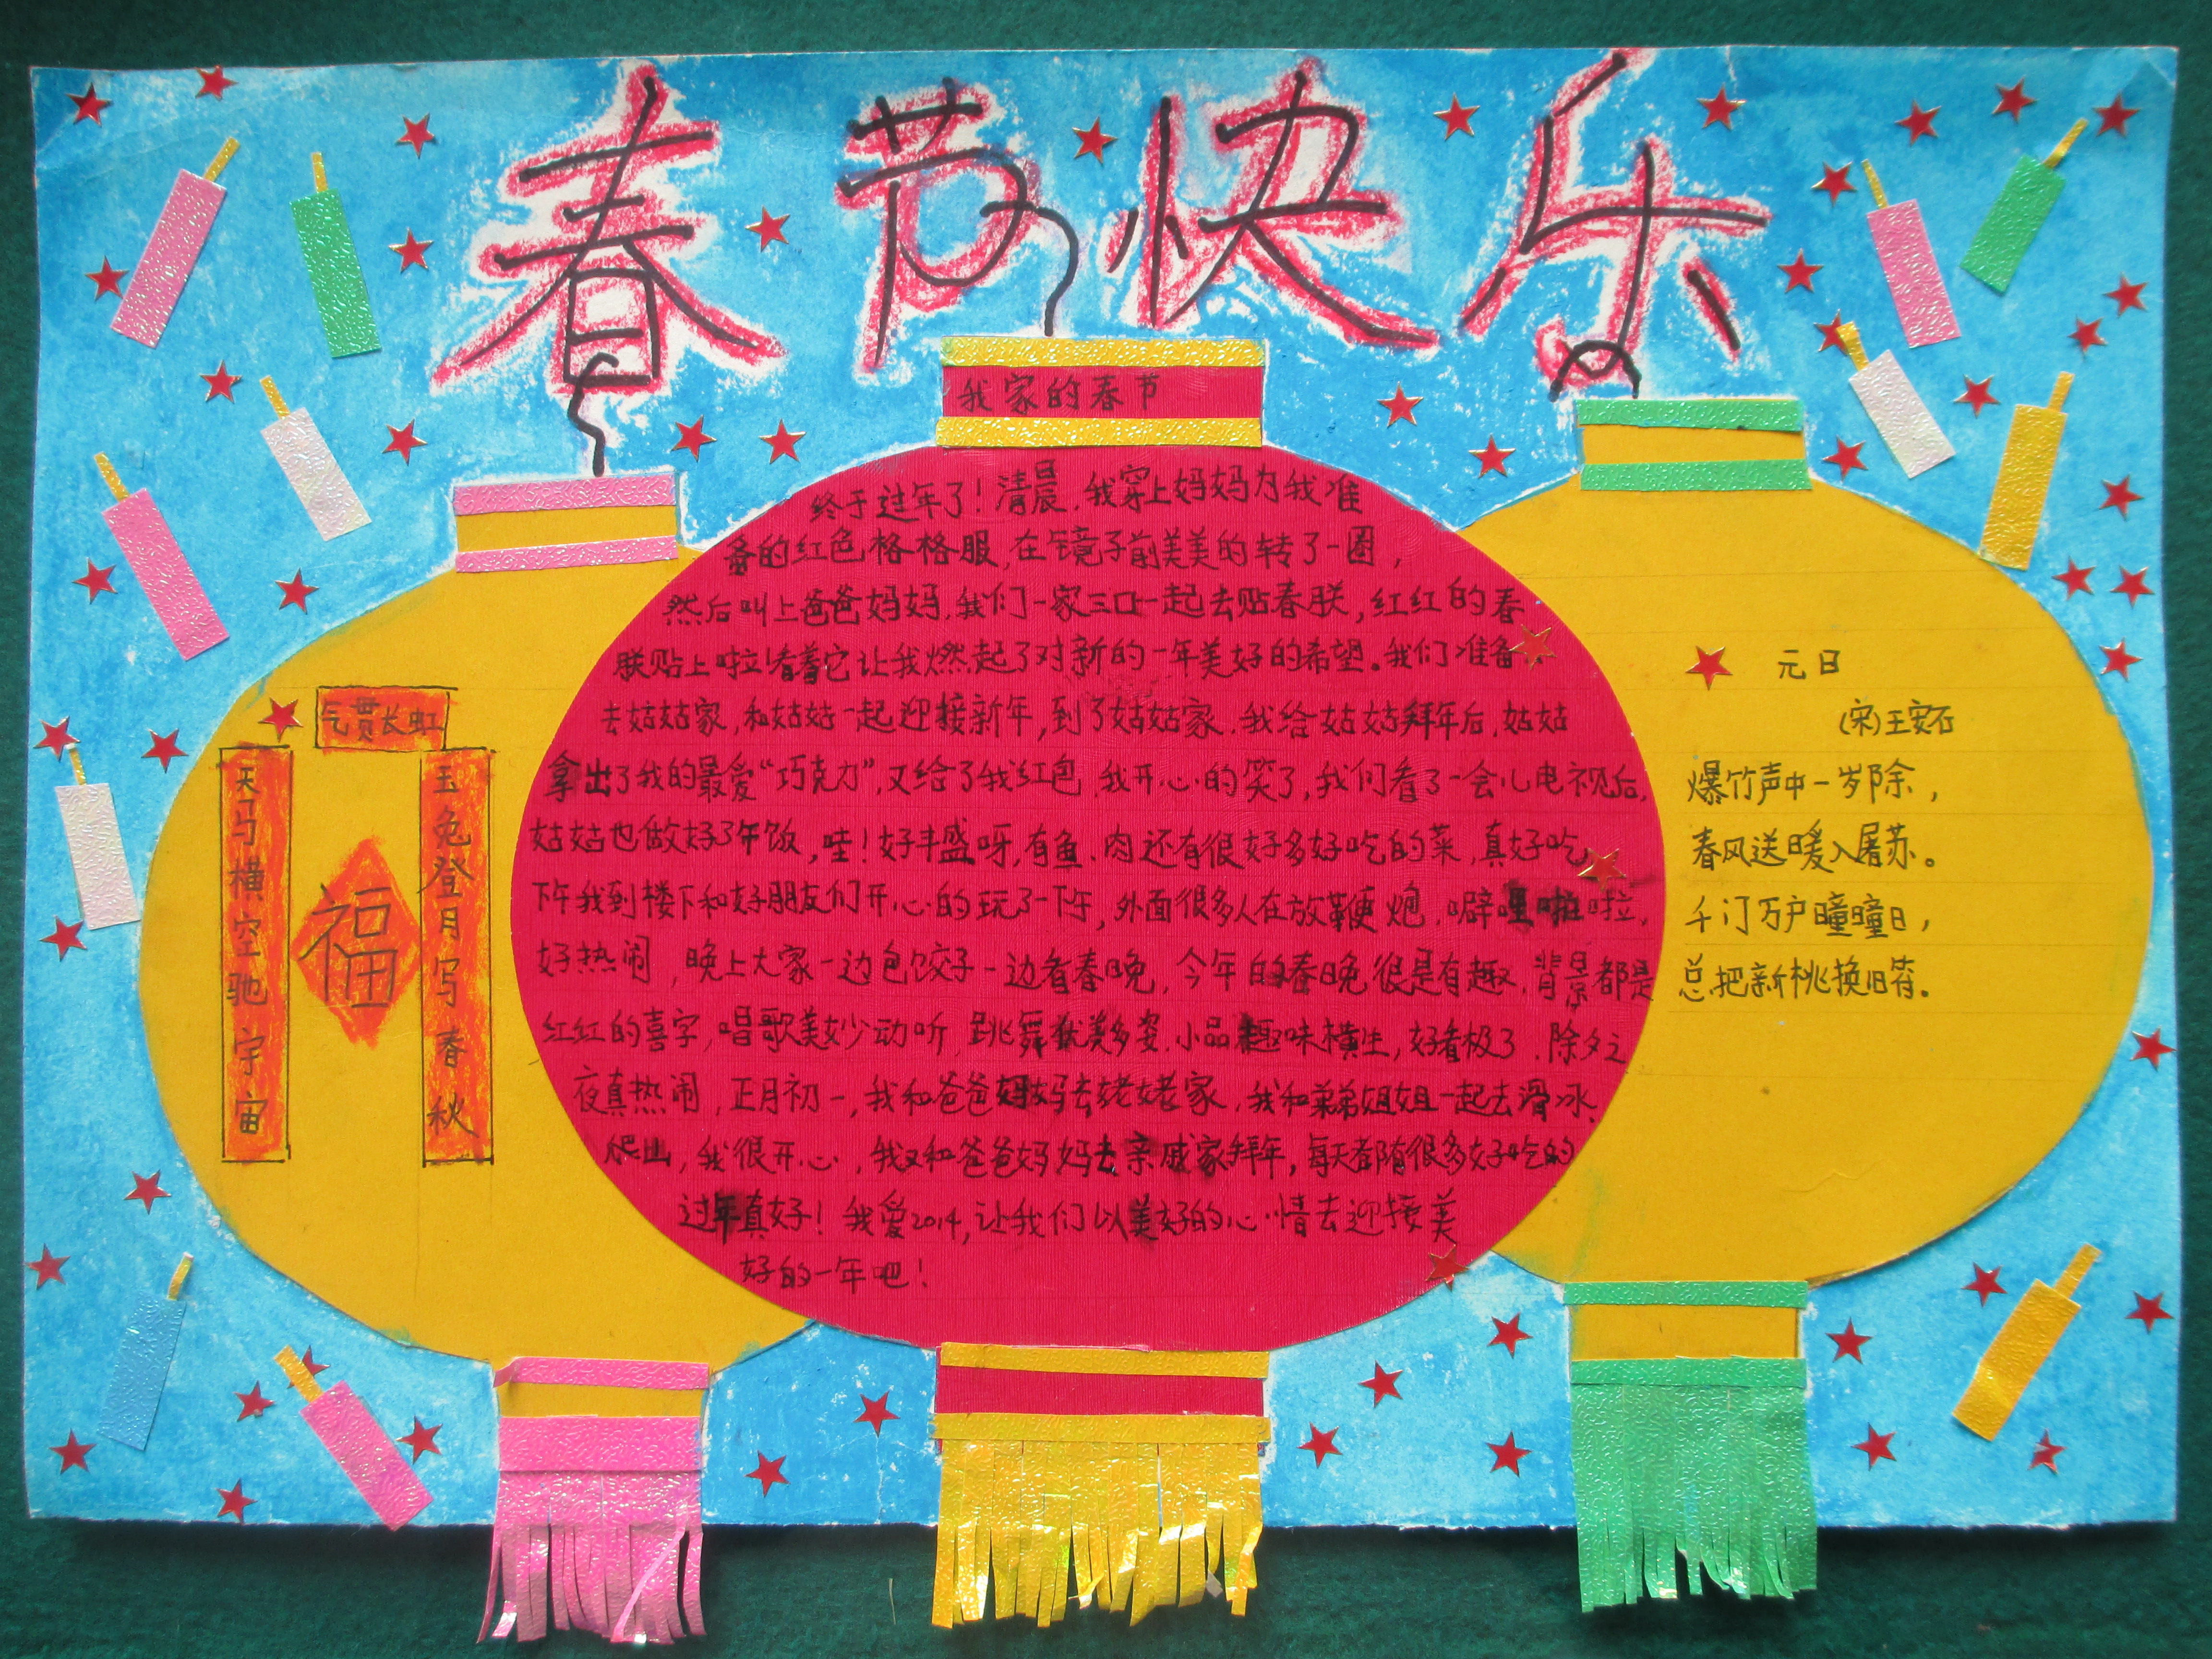 春节快乐
我家的春节
终于过年了！清晨，我穿上妈妈为我准
备的红色格格服，在镜子前美美的转了一圈，
然后叫上爸爸妈妈，我们一家三口一起去贴春联，红红的春
联贴上啦！看着它让我燃起了对新的一年美好的希望。我们准备
去姑姑家，和姑姑一起迎接新年，到了姑姑家，我给姑姑拜年后，姑姑
拿出了我的最爱“巧克力”，又给了我红包，我开心的笑了，我们看了一会儿电视后，
姑姑也做好了年饭，哇！好丰盛呀，有鱼、肉还有很好多好吃的菜，真好吃，
下午我到楼下和好朋友们开心的玩了一下午，外面很多人在放鞭炮，噼哩啪啦，
好热闹，晚上大家一边包饺子一边看春晚，今年的春晚很是有趣，背景都是
红红的喜字，唱歌美妙动听，跳舞优美多姿，小品趣味横生，好看极了，除夕之
夜真热闹，正月初一，我和爸爸妈妈去姥姥家，我和弟弟姐姐一起去滑冰、
爬山，我很开心，我又和爸爸妈妈去亲戚家拜年，每天都有很多好吃的
过年真好！我爱2014，让我们以美好的心情去迎接美
好的一年吧！
气贯长虹
天马横空驰宇宙
福
玉兔登月写春秋
元日
（宋）王安石
爆竹声中一岁除，
春风送暖入屠苏。
千门万户曈曈日，
总把新桃换旧符。